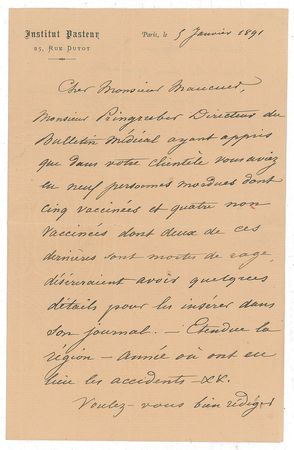 Institut Pasteur
25, Rue Dutot
Paris, le 5 Janvier 1891
Cher Monsieur
Monsieur Directeur du
Bulletin Médical ayant appris
que dans votre clientèle vous aviez
eu neuf personnes mordues dont
cinq vaccinées et quatre non
vaccinées dont deux de ces
dernières sont mortes de rage,
désireraient avoir quelques
détails pour les insérer dans
son journal. — Etendue la
région — année où ont eu
lieu les accidents —
Voulez-vous bien rédiger